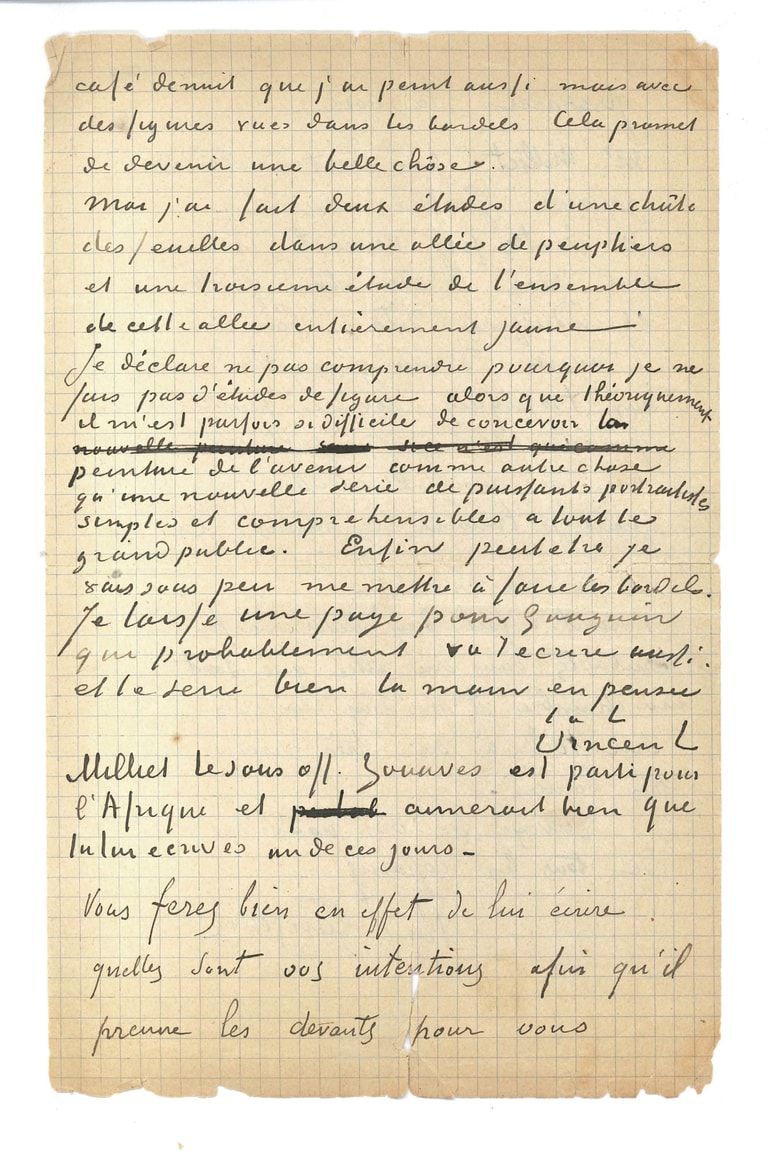 café de nuit que j'ai peint aussi mais avec
des figures vues dans les bordels Cela promet
de devenir une belle chôse.
Moi j'ai fait deux études d'une chûte
des feuilles dans une allée de peupliers
et une troisieme étude de l'ensemble
de cette allee entièrement jaune
Je déclare ne pas comprendre pourquoi je ne
fais pas d'études de figure alors que théoriquement
il m'est parfois si difficile de concevoir la
nouvelle peinture si ce n'est que comme
peinture de l'avenir comme autre chose
qu'une nouvelle serie de puissants portraitistes
simples et comprehensibles a tout le
grand public. Enfin peutetre je
vais sous peu me mettre à faire les bordels.
Je laisse une page pour Gauguin
qui probablement va t'ecrire aussi.
et te serre bien la main en pensée
t. à t.
Vincent
Milliet le sous off. Zouaves est parti pour
l'Afrique et aimerait bien que
tu lui ecrives un de ces jours –
Vous ferez bien en effet de lui écrire
quelles sont vos intentions afin qu'il
prenne les devants pour vous